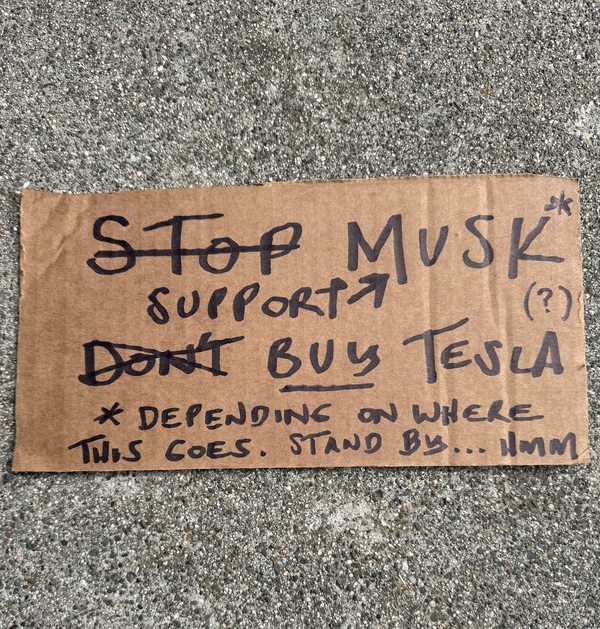 STOP MUSK*
SUPPORT (?)
DON'T BUY TESLA
* DEPENDING ON WHERE
THIS GOES. STAND BY... HMM